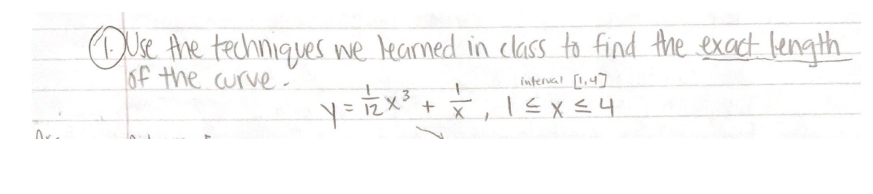 1. Use the techniques we learned in class to find the exact length
of the curve.
interval [1,4]
y = 1/12 x³ + 1/x , 1 ≤ x ≤ 4